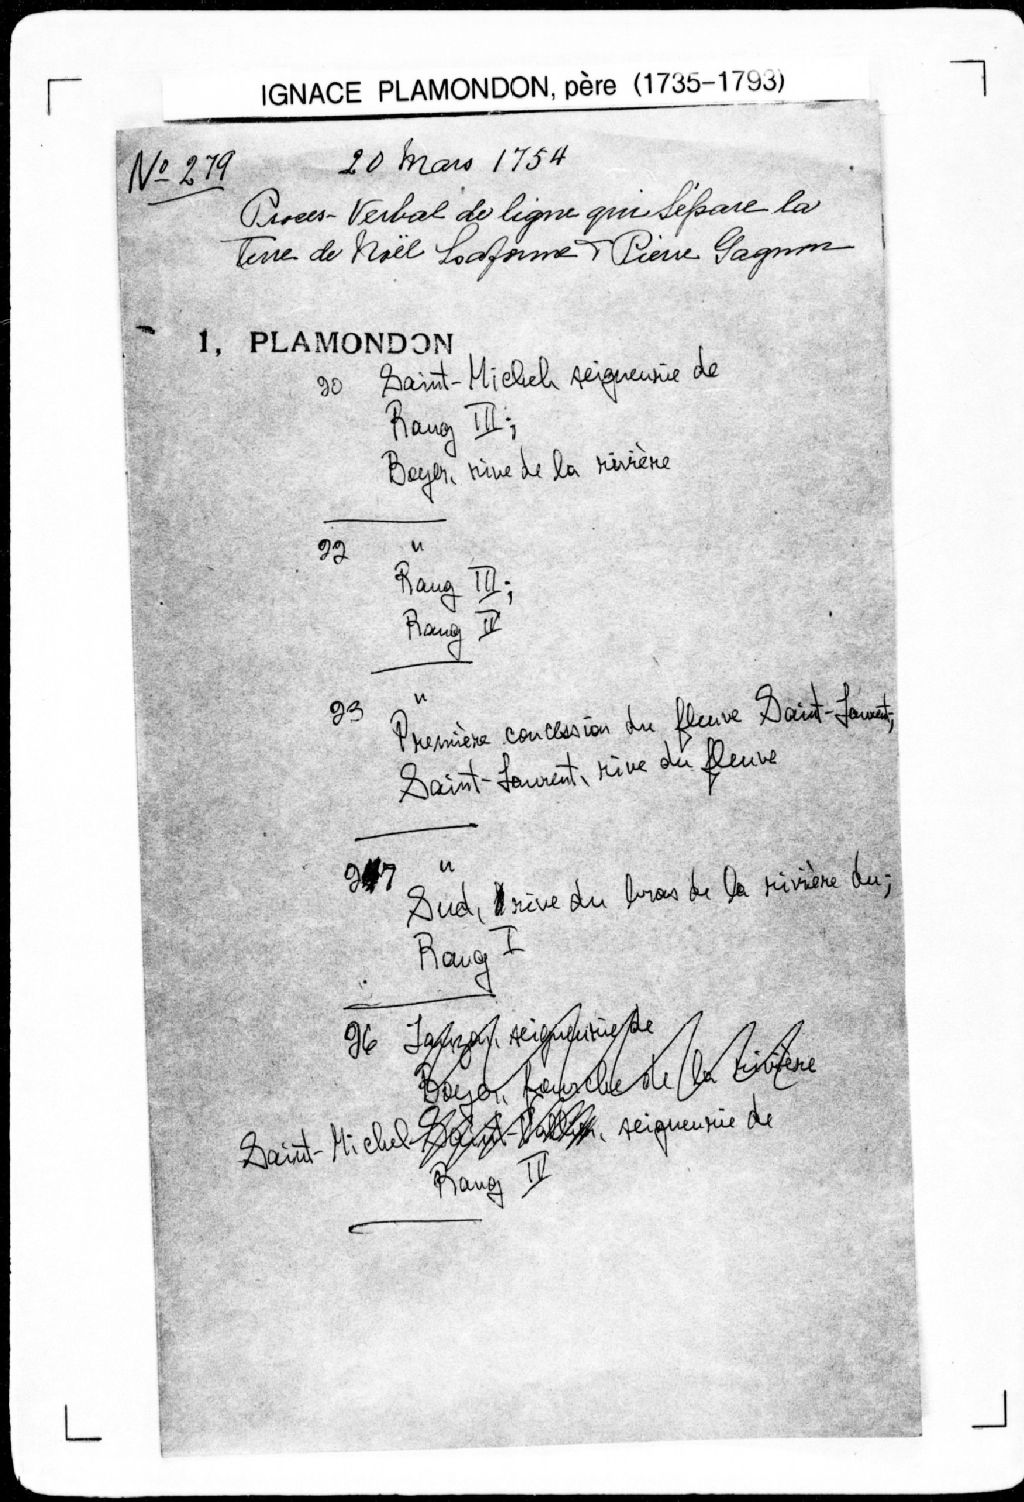 IGNACE PLAMONDON, père (1735-1793)
No 279 20 Mars 1754
Proces-Verbal de ligne qui Sépare la
Terre de Noël Laforme & Pierre Gagnon
1, PLAMONDON
20 Saint-Michel, seigneurie de
Rang III;
Boyer, rive de la rivière
22 "
Rang III;
Rang IV
23 "
Première concession du fleuve Saint-Laurent;
Saint-Laurent, rive du fleuve
27 "
Sud, rive du bras de la rivière du;
Rang I
26 Lauzon, seigneurie de
Boyer, fourche de la rivière
Saint-Michel Saint-Vallier, seigneurie de
Rang IV